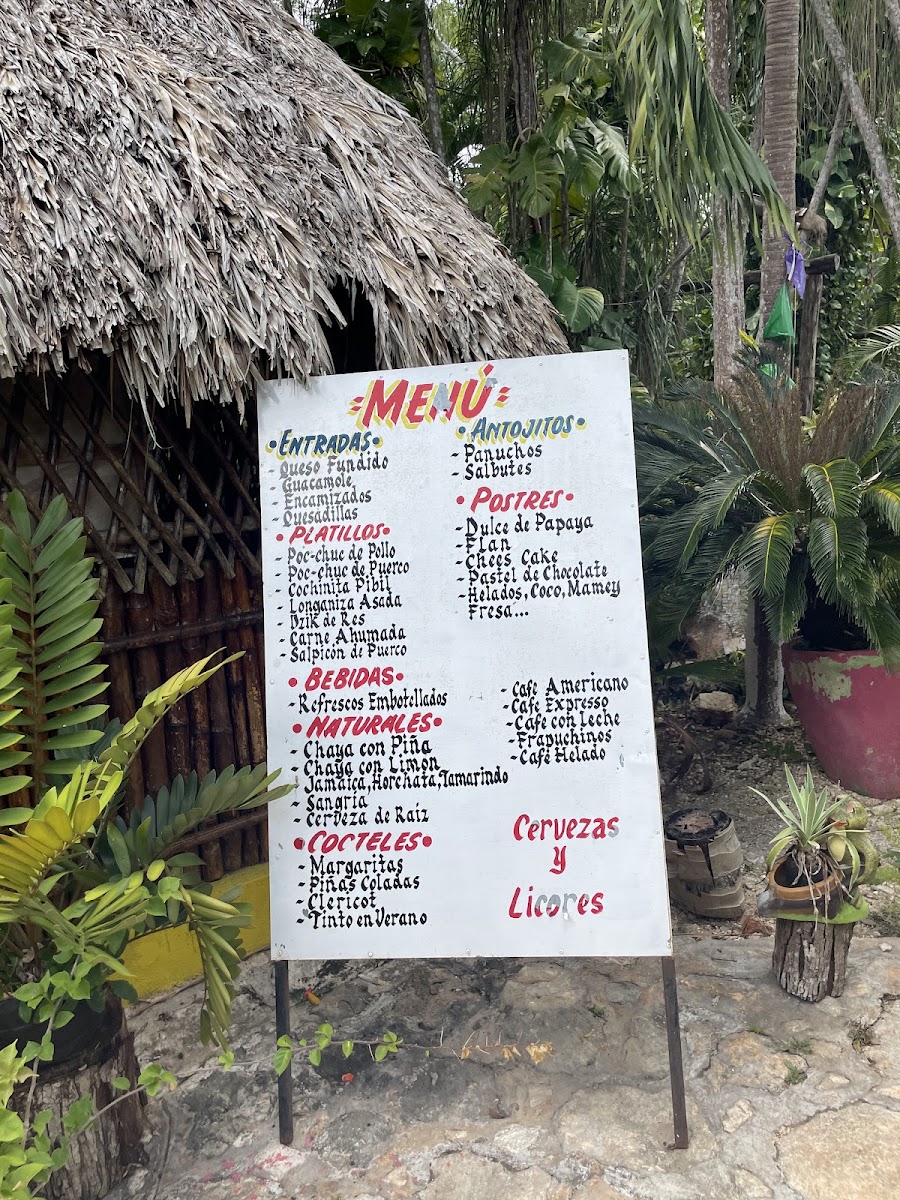 MENÚ
• ENTRADAS •
- Queso Fundido
- Guacamole
- Encamizados
- Quesadillas
• PLATILLOS •
- Poc-chuc de Pollo
- Poc-chuc de Puerco
- Cochinita Pibil
- Longaniza Asada
- Dzik de Res
- Carne Ahumada
- Salpicón de Puerco
• BEBIDAS •
- Refrescos Embotellados
• NATURALES •
- Chaya con Piña
- Chaya con Limon
- Jamaica, Horchata, Tamarindo
- Sangria
- Cerveza de Raíz
• COCTELES •
- Margaritas
- Piñas Coladas
- Clericot
- Tinto en Verano
• ANTOJITOS •
- Panuchos
- Salbutes
• POSTRES •
- Dulce de Papaya
- Flan
- Chees Cake
- Pastel de Chocolate
- Helados, Coco, Mamey
Fresa...
- Café Americano
- Café Expresso
- Café con Leche
- Frapuchinos
- Café Helado
Cervezas
y
Licores